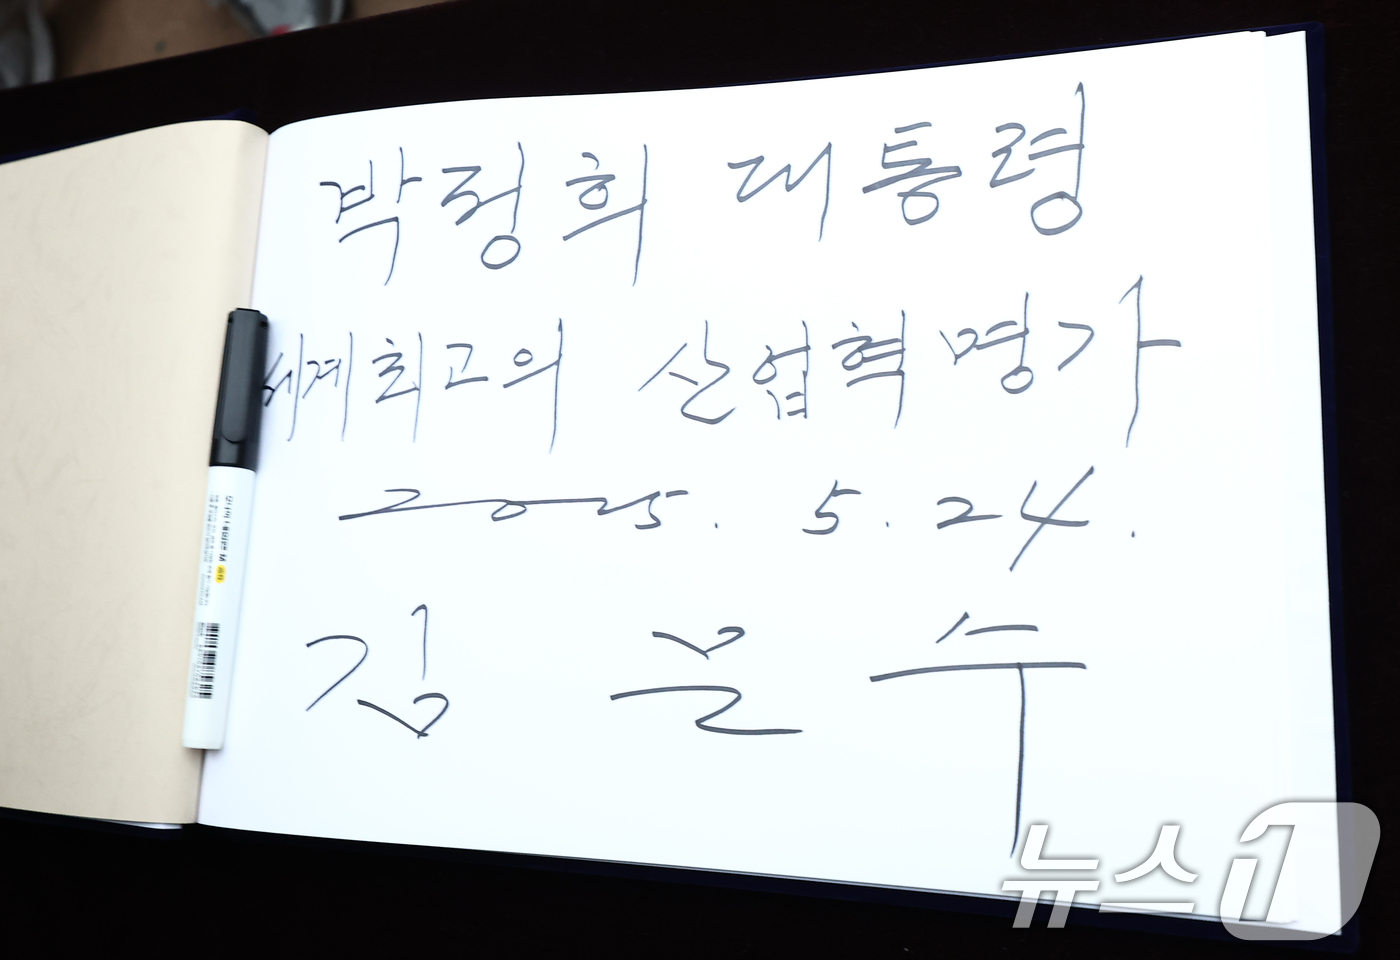 박정희 대통령
세계최고의 산업혁명가
2025. 5. 24.
김문수
뉴스1